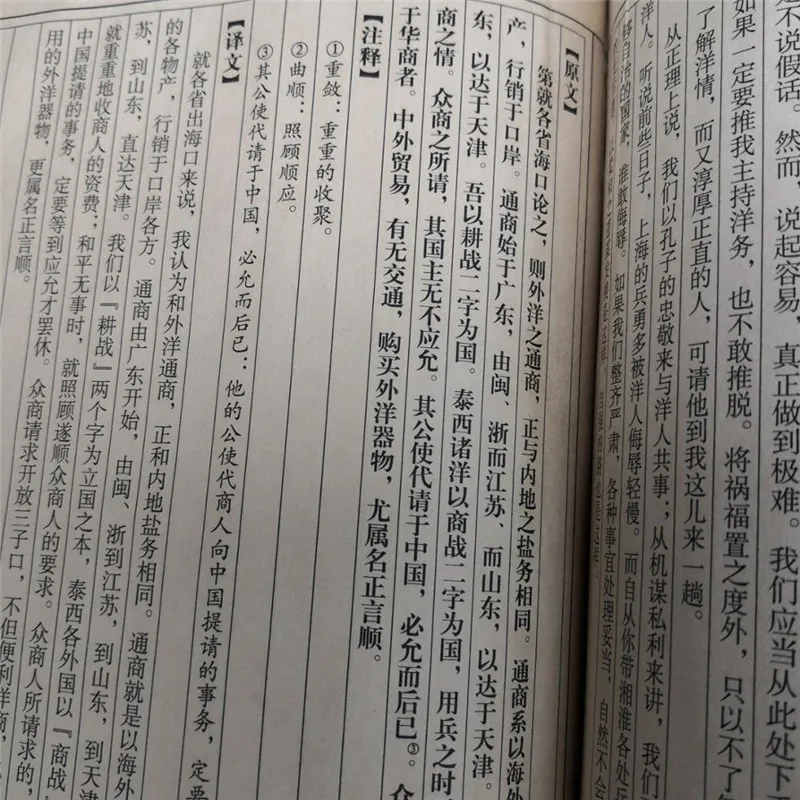 不说假话。然而,说起容易,真正做到极难。我们应当从此处下
如果一定要推我主持洋务,也不敢推脱。将祸福置之度外,只以不了
了解洋情,而又淳厚正直的人,可请他到我这儿来一趟。
从正理上说,我们以孔子的忠敬来与洋人共事;从机谋私利来讲,我们
洋人。听说前些日子,上海的兵勇多被洋人侮辱轻慢。而自从你带湘淮各处兵
够自治的国家,谁敢侮辱。如果我们整齐严肃,各种事宜处理妥当,自然不会
【原文】
第就各省海口论之,则外洋之通商,正与内地之盐务相同。通商系以海外
产,行销于口岸。通商始于广东,由闽、浙而江苏、而山东,以达于天津。
东,以达于天津。吾以耕战二字为国。泰西诸洋以商战二字为国,用兵之时
商之情。众商之所请,其国主无不应允。其公使代请于中国,必允而后已③。众
于华商者。中外贸易,有无交通,购买外洋器物,尤属名正言顺。
【注释】
①重敛:重重的收聚。
②曲顺:照顾顺应。
③其公使代请于中国,必允而后已:他的公使代商人向中国提请的事务,定要
【译文】
就各省出海口来说,我认为和外洋通商,正和内地盐务相同。通商就是以海外
的各物产,行销于口岸各方。通商由广东开始,由闽、浙到江苏,到山东,到天津
苏,到山东,直达天津。我们以『耕战』两个字为立国之本,泰西各外国以『商战
就重重地收商人的资费;和平无事时,就照顾遂顺众商人的要求。众商人所请求的,
中国提请的事务,定要等到应允才罢休。众商请求开放三子口,不但便利洋商,
用的外洋器物,更属名正言顺。